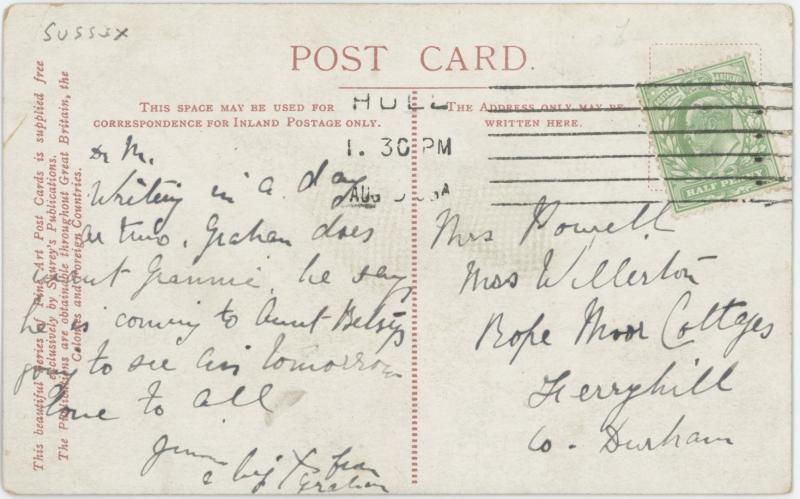 SUSSEX
POST CARD.
THIS SPACE MAY BE USED FOR
CORRESPONDENCE FOR INLAND POSTAGE ONLY.
THE ADDRESS ONLY MAY BE
WRITTEN HERE.
HULL
1. 30 PM
AUG
HALF PENNY
This beautiful Series of Fine Art Post Cards is supplied free
exclusively by Shurey's Publications.
The Publications are obtainable throughout Great Britain, the
Colonies and Foreign Countries.
Dr M.
Writing in a day
or two. Graham does
want Grannie, he says
he is coming to Aunt Betsys
going to see in tomorrow
love to all
a big X from
Graham
Mrs Powell
Mrs Willerton
Rope Moor Cottges
Ferryhill
Co. Durham